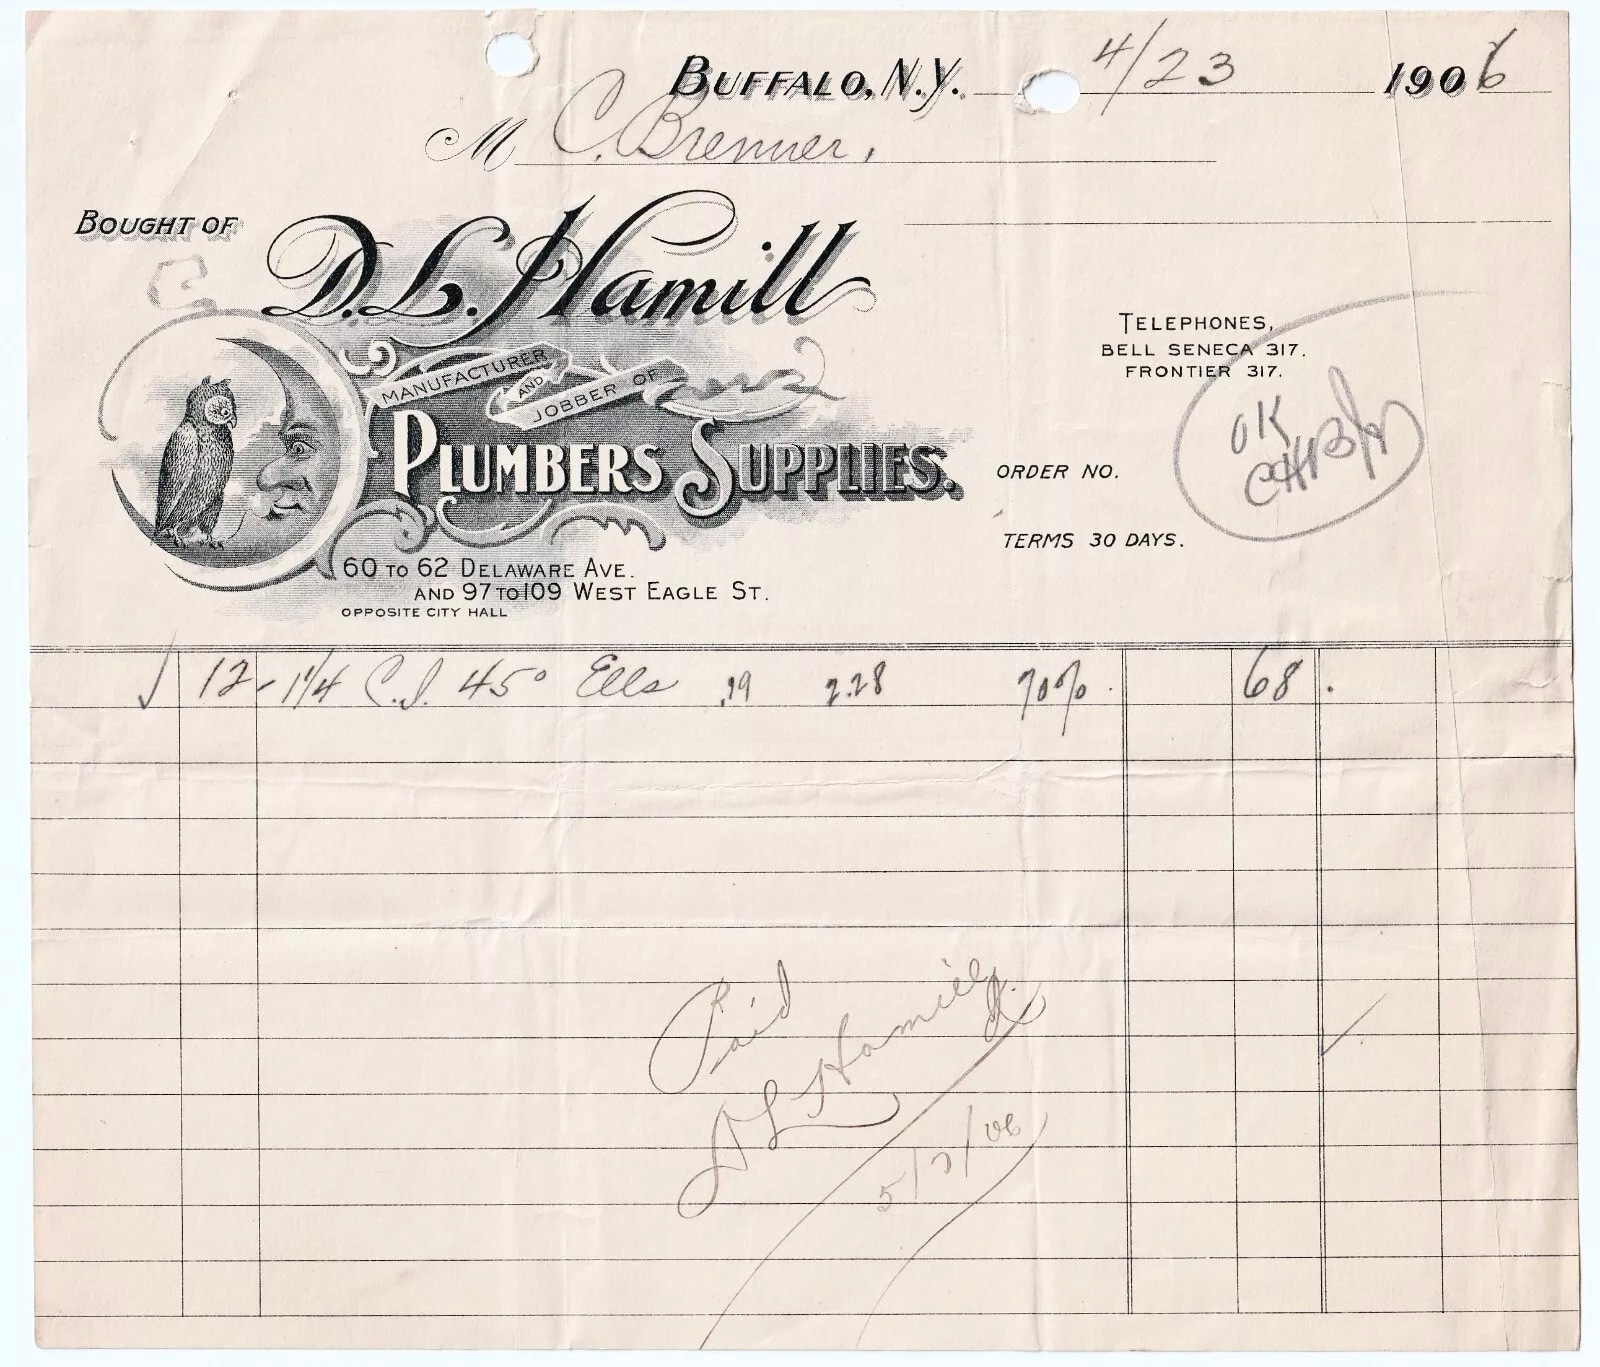 BUFFALO, N.Y. 4/23 1906
M C. Brenner,
BOUGHT OF
D. L. Hamill
MANUFACTURER AND JOBBER OF
PLUMBERS SUPPLIES.
60 TO 62 DELAWARE AVE.
AND 97 TO 109 WEST EAGLE ST.
OPPOSITE CITY HALL
TELEPHONES,
BELL SENECA 317.
FRONTIER 317.
OK
ORDER NO.
TERMS 30 DAYS.
12 - 1 1/4 C.I. 45° Ells .19 2.28 70% 68
Paid
D L Hamill
5/7/06